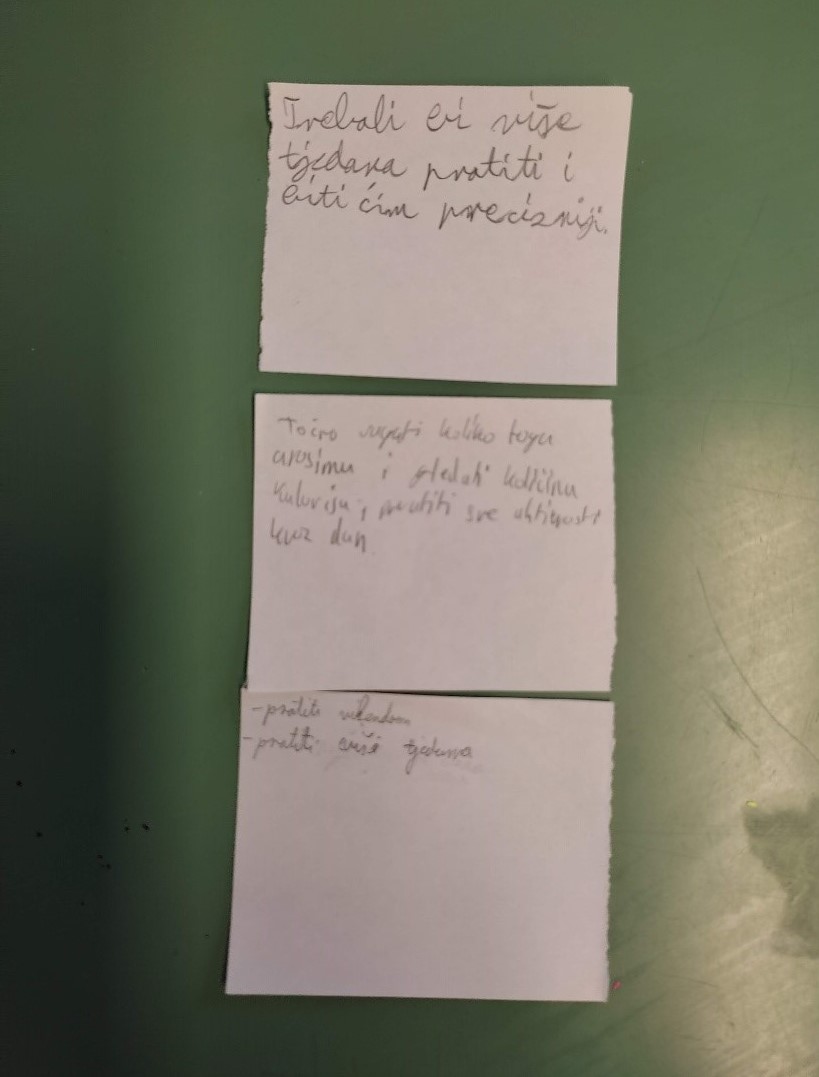 Trebali bi više
tjedana pratiti i
biti ćim precizniji.
Točno vagati koliko toga
unosimo i gledati količinu
kalorija, pratiti sve aktivnosti
kroz dan
-pratiti vikendom
-pratiti više tjedana